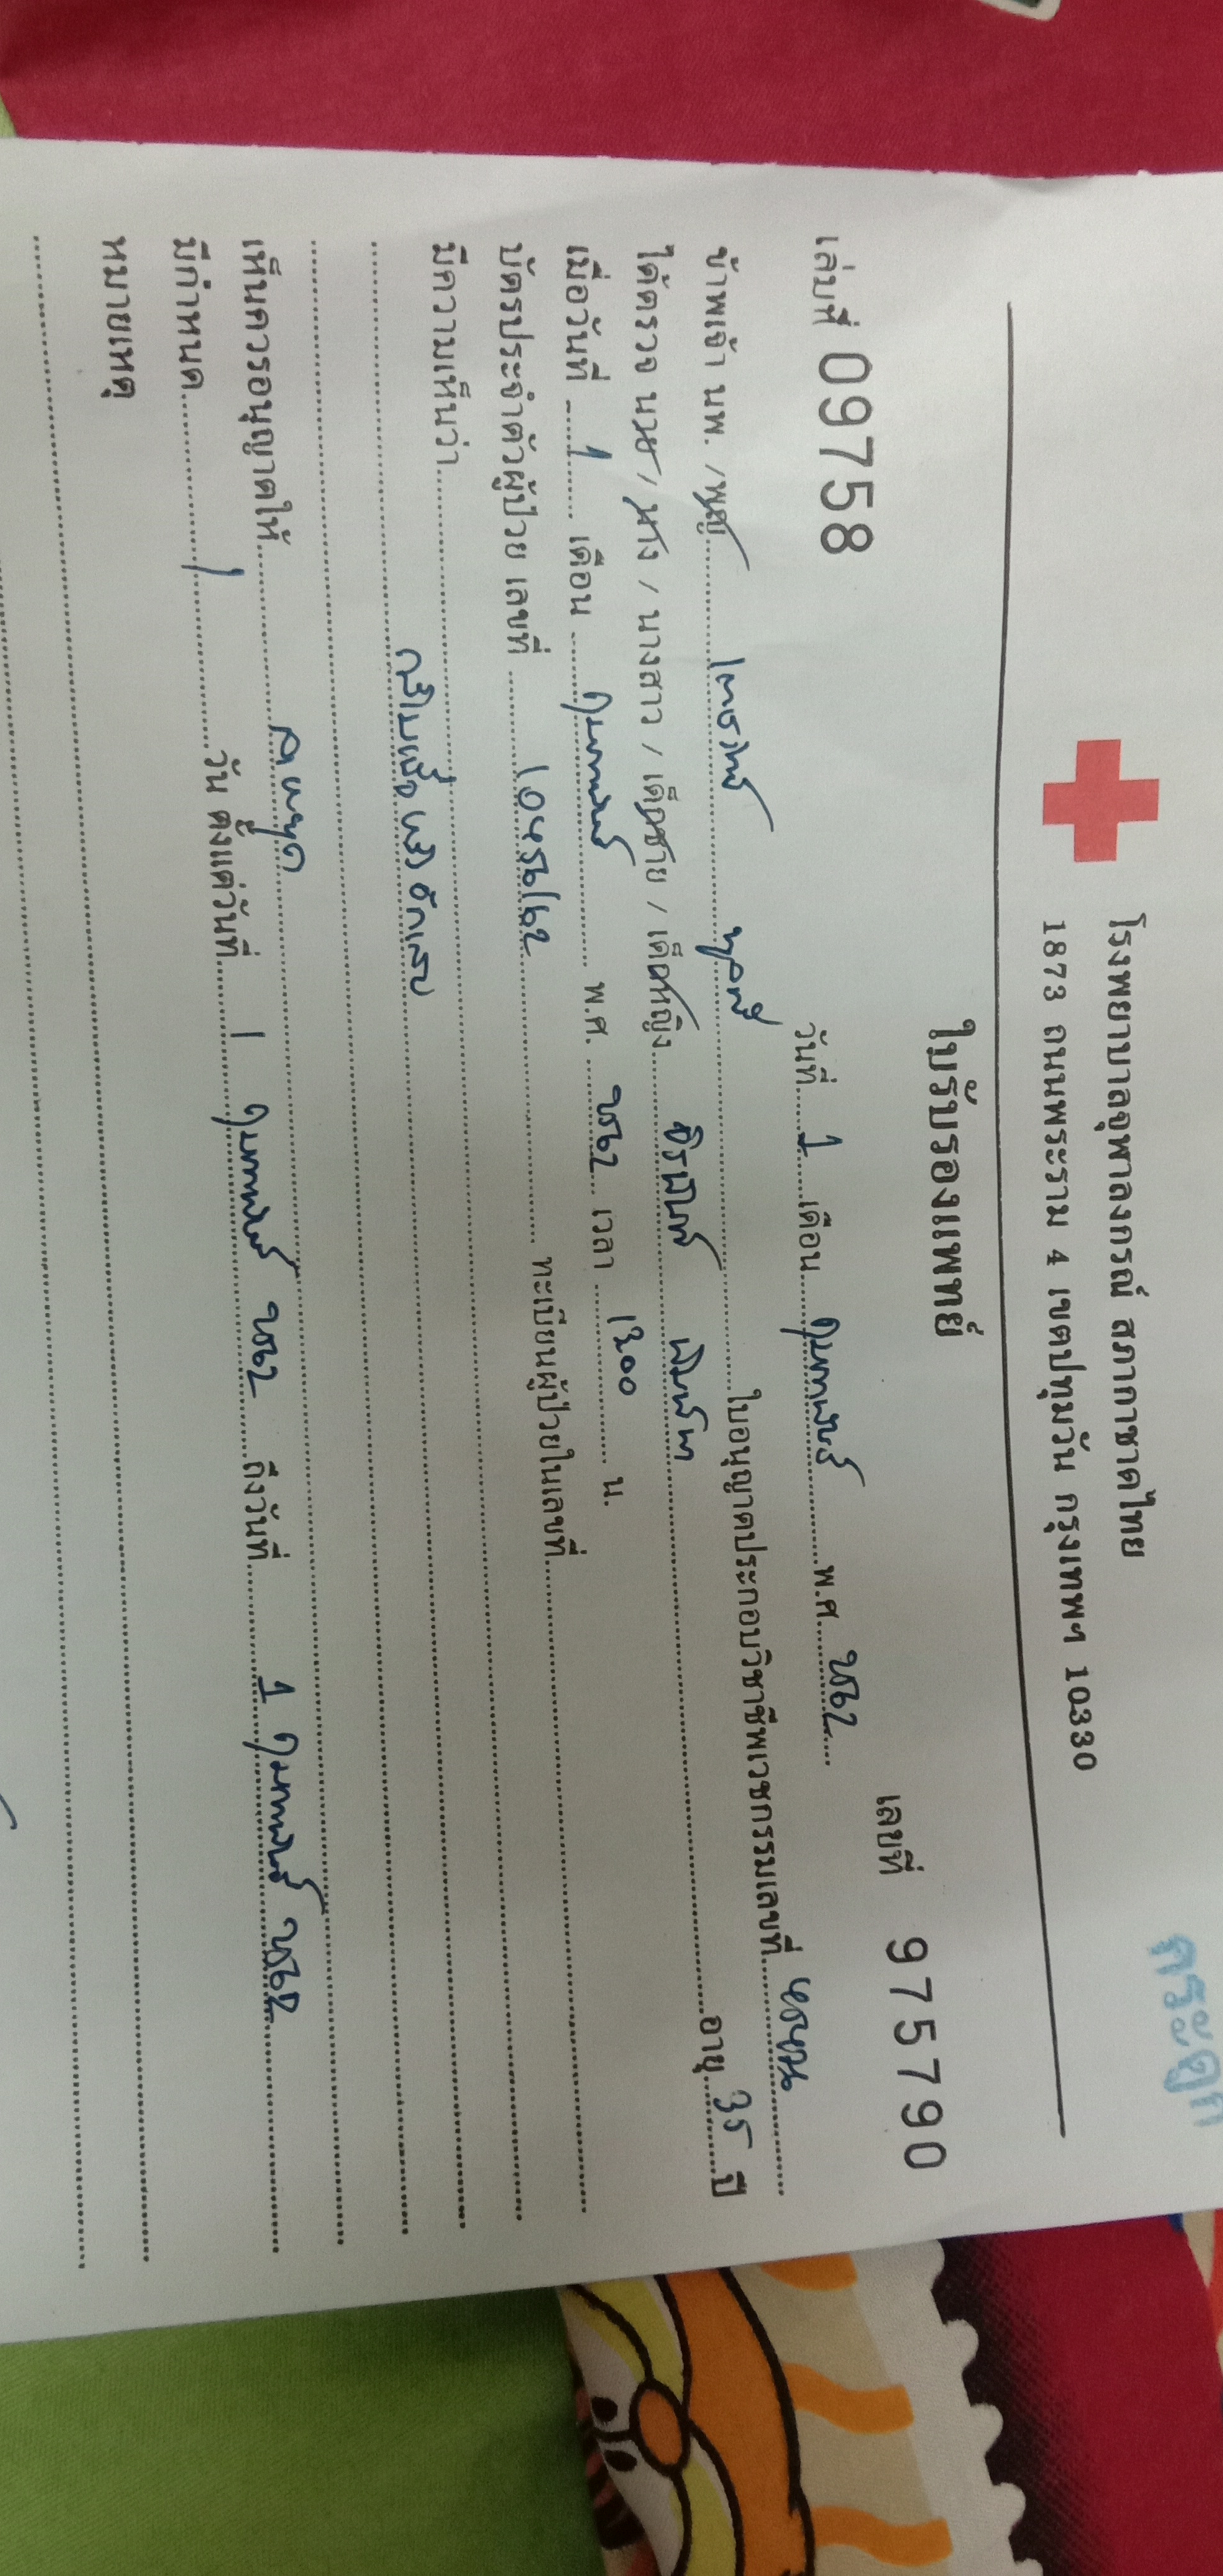 กระดูก
โรงพยาบาลจุฬาลงกรณ์ สภากาชาดไทย
1873 ถนนพระราม 4 เขตปทุมวัน กรุงเทพฯ 10330
ใบรับรองแพทย์
เล่มที่ 09758 เลขที่ 975790
วันที่ 1 เดือน กุมภาพันธ์ พ.ศ. 2562
ข้าพเจ้า นพ. / พญ. ใบอนุญาตประกอบวิชาชีพเวชกรรมเลขที่
ได้ตรวจ นาย / นาง / นางสาว / เด็กชาย / เด็กหญิง อายุ 35 ปี
เมื่อวันที่ 1 เดือน กุมภาพันธ์ พ.ศ. 2562 เวลา 1300 น.
บัตรประจำตัวผู้ป่วย เลขที่ ทะเบียนผู้ป่วยในเลขที่
มีความเห็นว่า
กล้ามเนื้อ หลัง อักเสบ
เห็นควรอนุญาตให้ ลาหยุด
มีกำหนด 1 วัน ตั้งแต่วันที่ 1 กุมภาพันธ์ 2562 ถึงวันที่ 1 กุมภาพันธ์ 2562
หมายเหตุ